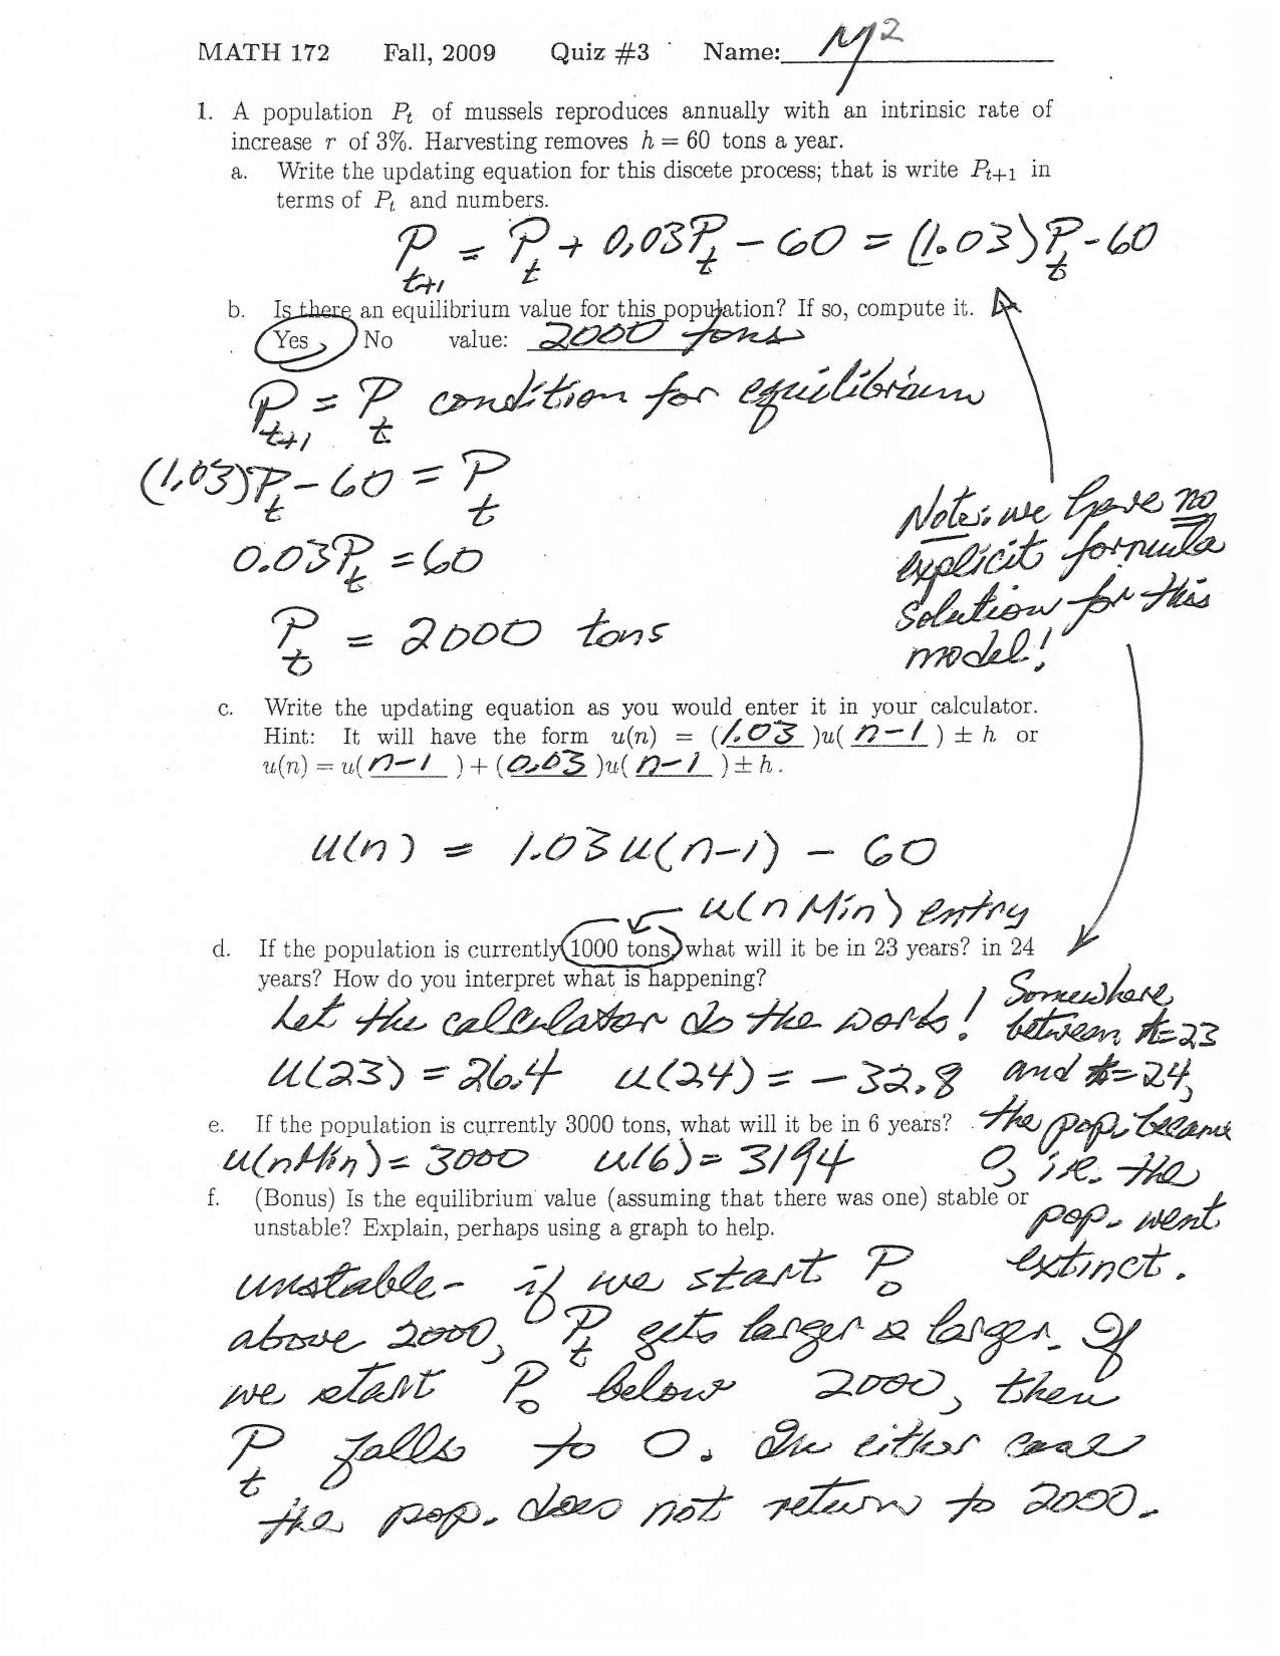 MATH 172 Fall, 2009 Quiz #3 Name: M²
1. A population Pt of mussels reproduces annually with an intrinsic rate of
increase r of 3%. Harvesting removes h = 60 tons a year.
a. Write the updating equation for this discete process; that is write Pt+1 in
terms of Pt and numbers.
Pt+1 = Pt + 0.03Pt - 60 = (1.03)Pt - 60
b. Is there an equilibrium value for this population? If so, compute it.
Yes No value: 2000 tons
Pt+1 = Pt condition for equilibrium
(1.03)Pt - 60 = Pt
0.03Pt = 60
Pt = 2000 tons
Note: we have no
explicit formula
solution for this
model!
c. Write the updating equation as you would enter it in your calculator.
Hint: It will have the form u(n) = (1.03)u(n-1) ± h or
u(n) = u(n-1) + (0.03)u(n-1) ± h.
u(n) = 1.03u(n-1) - 60
u(nMin) entry
d. If the population is currently 1000 tons, what will it be in 23 years? in 24
years? How do you interpret what is happening?
Let the calculator do the work!
u(23) = 26.4 u(24) = -32.8
Somewhere
between t=23
and t=24,
the pop. became
0, i.e. the
pop. went
extinct.
e. If the population is currently 3000 tons, what will it be in 6 years?
u(nMin) = 3000 u(6) = 3194
f. (Bonus) Is the equilibrium value (assuming that there was one) stable or
unstable? Explain, perhaps using a graph to help.
unstable - if we start P0
above 2000, Pt gets larger & larger. If
we start P0 below 2000, then
Pt falls to 0. In either case
the pop. does not return to 2000.